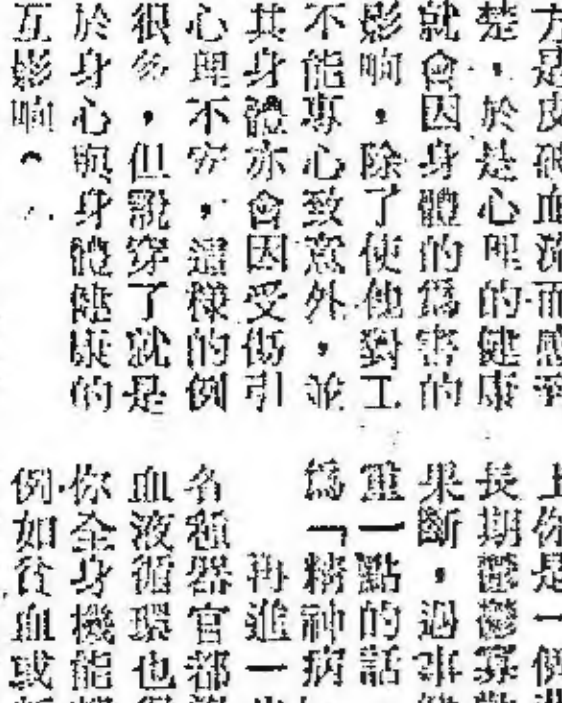 方是皮破血流而感到
楚，於是心理的健康
就會因身體的傷害的
影响，除了使他對工
不能專心致意外，並
其身體亦會因受傷引
心理不安，這樣的例
很多，但說穿了就是
於身心與身體健康的
互影响。
上你是一個
長期鬱鬱寡歡
果斷，過事
重一點的話
爲「精神病
再進一
各種器官都
血液循環也
你全身機能
例如貧血或